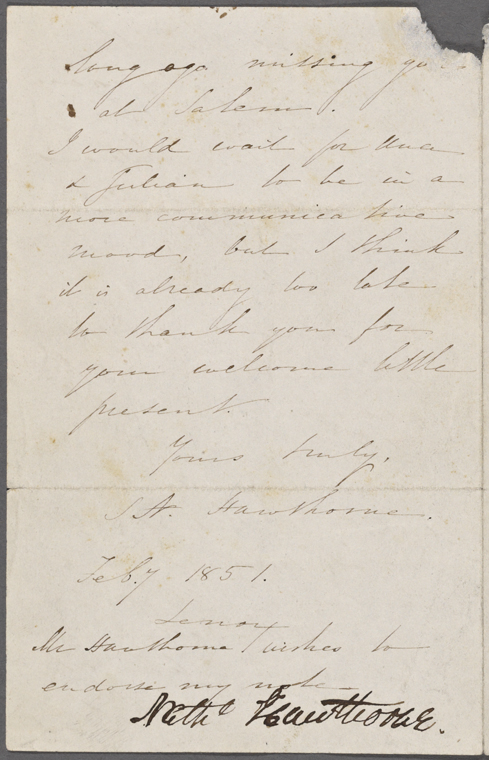 long ago missing you
at Salem.
I would wait for Una
& Julian to be in a
more communicative
mood, but I think
it is already too late
to thank you for
your welcome little
present.
Yours truly,
S A. Hawthorne.
Feb. 7 1851.
Lenox
Mr Hawthorne wishes to
endorse my note
Nathl Hawthorne.